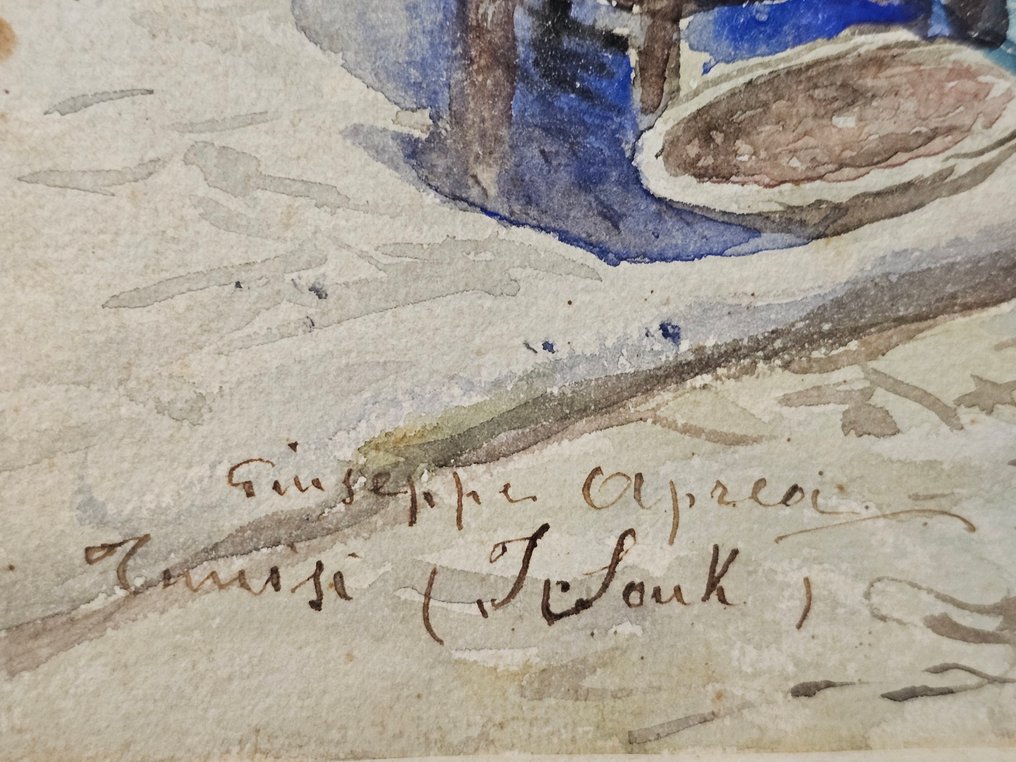 Giuseppe Aprea
Tunisi (I Souk)